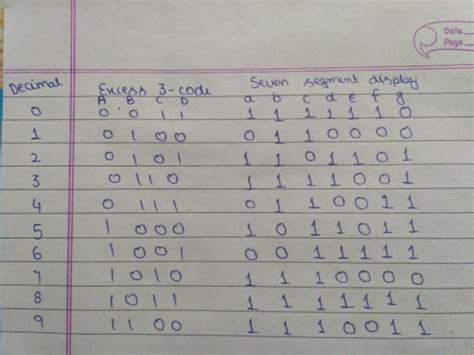 Date
Page
Decimal Excess 3-code Seven segment display
A B C D a b c d e f g
0 0 0 1 1 1 1 1 1 1 1 0
1 0 1 0 0 0 1 1 0 0 0 0
2 0 1 0 1 1 1 0 1 1 0 1
3 0 1 1 0 1 1 1 1 0 0 1
4 0 1 1 1 0 1 1 0 0 1 1
5 1 0 0 0 1 0 1 1 0 1 1
6 1 0 0 1 0 0 1 1 1 1 1
7 1 0 1 0 1 1 1 0 0 0 0
8 1 0 1 1 1 1 1 1 1 1 1
9 1 1 0 0 1 1 1 0 0 1 1